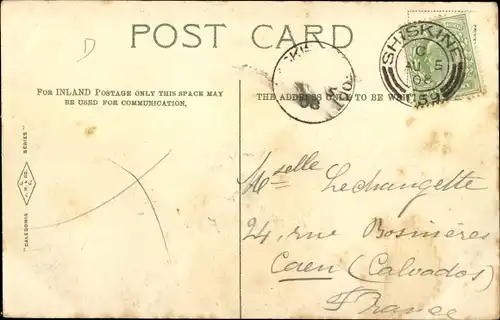 POST CARD
D
FOR INLAND POSTAGE ONLY THIS SPACE MAY
BE USED FOR COMMUNICATION.
THE ADDRESS ONLY TO BE
SHISKINE
C
AU 5
08
"CALEDONIA SERIES"
Mselle Lechangette
24, rue Bosnières
Caen (Calvados)
France